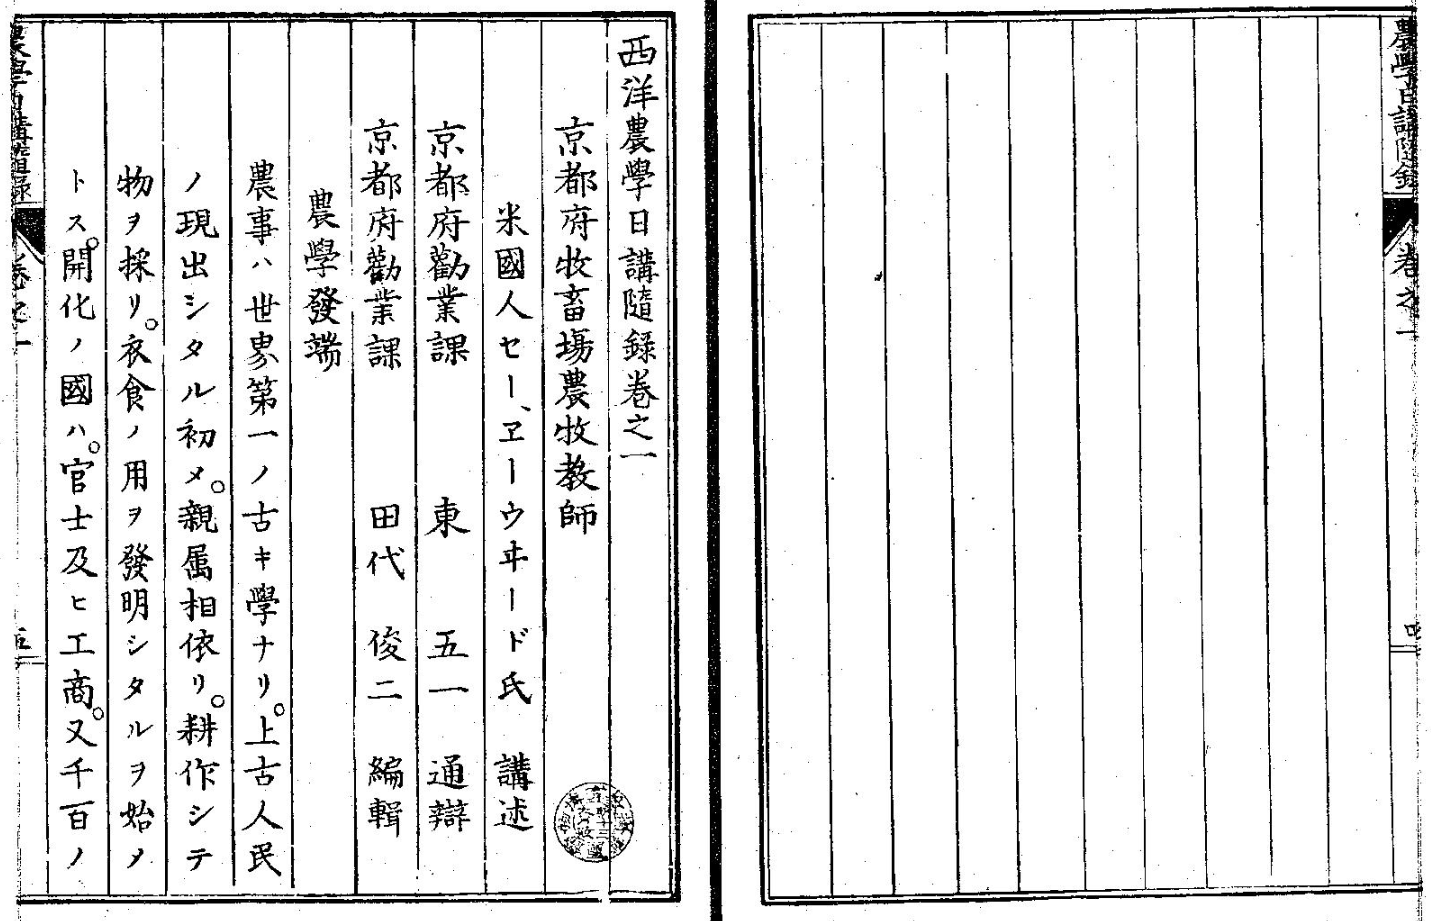 農學日講隨録 卷之一
西洋農學日講隨録卷之一
京都府牧畜場農牧教師
米國人セー、ヱーウヰード氏 講述
京都府勸業課 東 五一 通辯
京都府勸業課 田代 俊二 編輯
農學發端
農事ハ世界第一ノ古キ學ナリ。上古人民
ノ現出シタル初メ。親属相依リ。耕作シテ
物ヲ採リ。衣食ノ用ヲ發明シタルヲ始メ
トス。開化ノ國ハ。官士及ヒ工商。又千百ノ